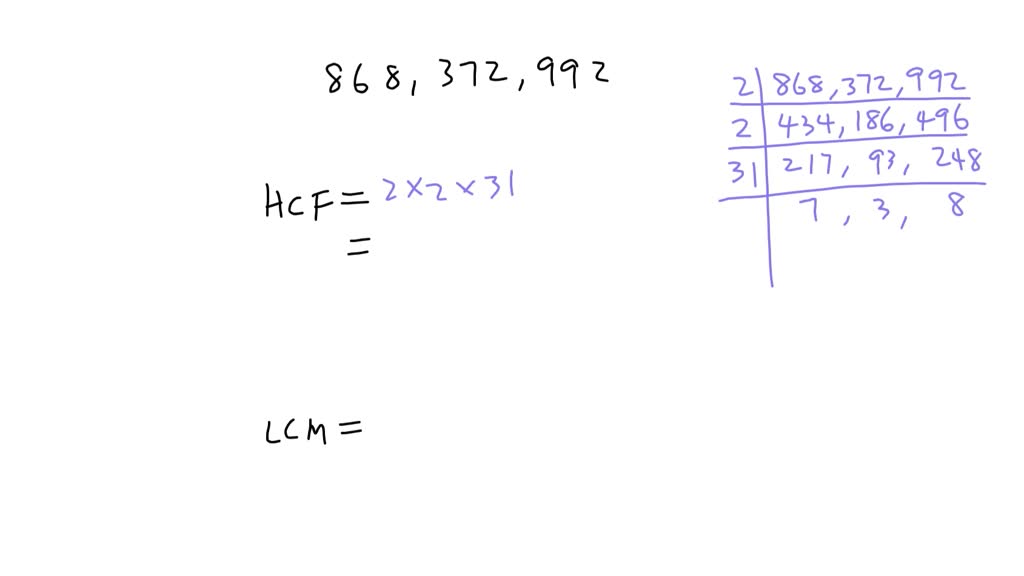 868, 372, 992
HCF = 2 × 2 × 31
=
LCM =
2 | 868, 372, 992
2 | 434, 186, 496
31 | 217, 93, 248
7, 3, 8